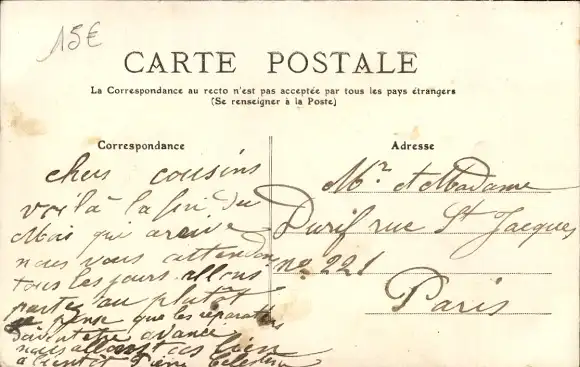 15€
CARTE POSTALE
La Correspondance au recto n'est pas acceptée par tous les pays étrangers
(Se renseigner à la Poste)
Correspondance
chers cousins
voilà la fin du
Mois qui arrive
nous vous attendons
tous les jours allons
partez au plutôt
je pense que les réparations
doivent etre avancé
nous allons tous bien
à bientôt
Adresse
Mr et Madame
Durif rue St Jacques
no 221
Paris